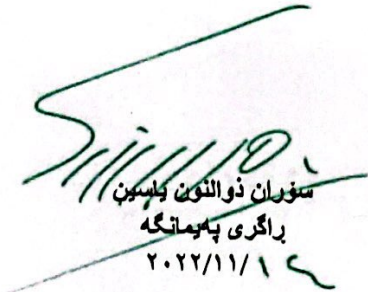 سۆران ذوالنون یاسین
راگری پەیمانگە
٢٠٢٢/١١/١٤